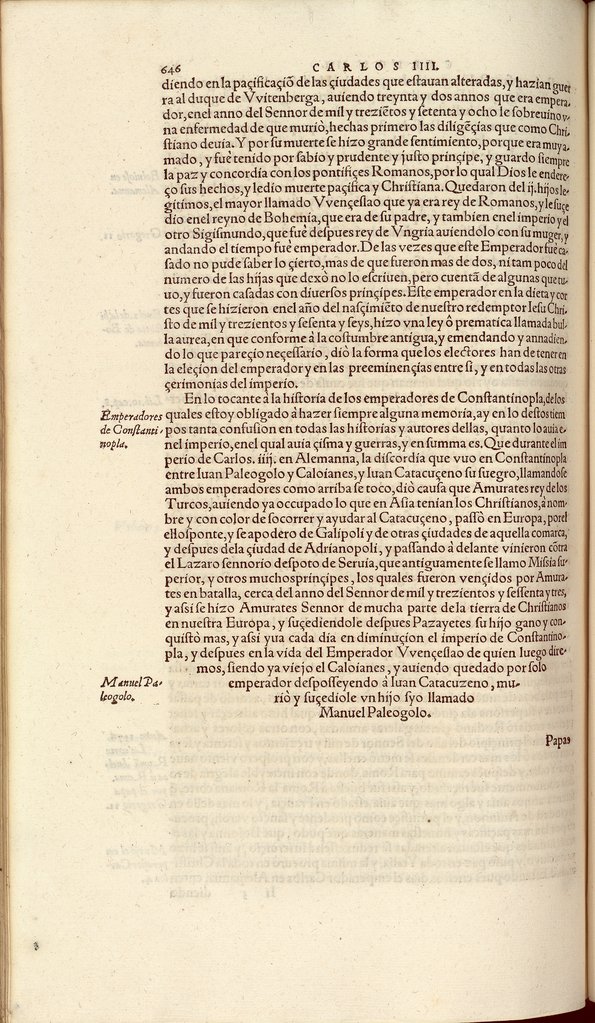 646
CARLOS IIII.
diendo en la paçificaçiō de las çiudades que eſtauan alteradas, y hazian guer
ra al duque de Vvitenberga, auiendo treynta y dos annos que era empera-
dor, enel anno del Sennor de mil y treziētos y ſetenta y ocho le ſobreuino v-
na enfermedad de que muriò, hechas primero las diligēçias que como Chri
ſtiano deuia. Y por ſu muerte ſe hizo grande ſentimiento, porque era muy a-
mado, y fuè tenido por ſabio y prudente y juſto prinçipe, y guardo ſiempre
la paz y concordia con los pontifiçes Romanos, por lo qual Dios le endere-
ço sus hechos, y ledio muerte paçifica y Chriſtiana. Quedaron del ij. hijos le-
gitimos, el mayor llamado Vvençeſlao que ya era rey de Romanos, y le ſuçe
dio enel reyno de Bohemia, que era de ſu padre, y tambien enel imperio y el
otro Sigiſmundo, que fuè deſpues rey de Vngria auiendolo con ſu muger, y
andando el tiempo fuè emperador. De las vezes que eſte Emperador fuè ca-
ſado no pude ſaber lo çierto, mas de que fueron mas de dos, ni tam poco del
numero de las hijas que dexò no lo eſcriuen, pero cuentā de algunas que tu-
uo, y fueron caſadas con diuerſos prinçipes. Eſte emperador en la dieta y cor
tes que ſe hizieron enel año del naſçimiēto de nueſtro redemptor Ieſu Chri-
ſto de mil y trezientos y ſeſenta y ſeys, hizo vna ley ò prematica llamada bul-
la aurea, en que conforme à la coſtumbre antigua, y emendando y annadien-
do lo que pareçio neçeſſario, diò la forma que los electores han de tener en
la eleçion del emperador y en las preeminençias entre ſi, y en todas las otras
çerimonias del imperio.
En lo tocante à la hiſtoria de los emperadores de Conſtantinopla, de los
Emperadores
de Conſtanti-
nopla.
quales eſtoy obligado à hazer ſiempre alguna memoria, ay en lo deſtos tiem
pos tanta confuſion en todas las hiſtorias y autores dellas, quanto lo auia e-
nel imperio, enel qual auia çiſma y guerras, y en ſumma es. Que durante el im
perio de Carlos. iiij. en Alemanna, la diſcordia que vuo en Conſtantinopla
entre Iuan Paleogolo y Caloianes, y Iuan Catacuçeno ſu ſuegro, llamandoſe
ambos emperadores como arriba ſe toco, diò cauſa que Amurates rey de los
Turcos, auiendo ya occupado lo que en Aſia tenian los Chriſtianos, à nom-
bre y con color de ſocorrer y ayudar al Catacuçeno, paſſò en Europa, por el
elloſponte, y ſe apodero de Galipoli y de otras çiudades de aquella comarca,
y deſpues dela çiudad de Adrianopoli, y paſſando à delante vinieron cōtra
el Lazaro ſennorio deſpoto de Seruia, que antiguamente ſe llamo Miſsia ſu-
perior, y otros muchos prinçipes, los quales fueron vençidos por Amura-
tes en batalla, cerca del anno del Sennor de mil y trezientos y ſeſſenta y tres,
y aſsi ſe hizo Amurates Sennor de mucha parte de la tierra de Chriſtianos
en nueſtra Europa, y ſuçediendole deſpues Pazayetes ſu hijo gano y con-
quiſtò mas, y aſsi yua cada dia en diminuçion el imperio de Conſtantino-
pla, y deſpues en la vida del Emperador Vvençeſlao de quien luego dire-
mos, ſiendo ya viejo el Caloianes, y auiendo quedado por ſolo
Manuel Pa-
leogolo.
emperador deſpoſſeyendo à Iuan Catacuzeno, mu-
riò y ſuçediole vn hijo ſyo llamado
Manuel Paleogolo.
Papas